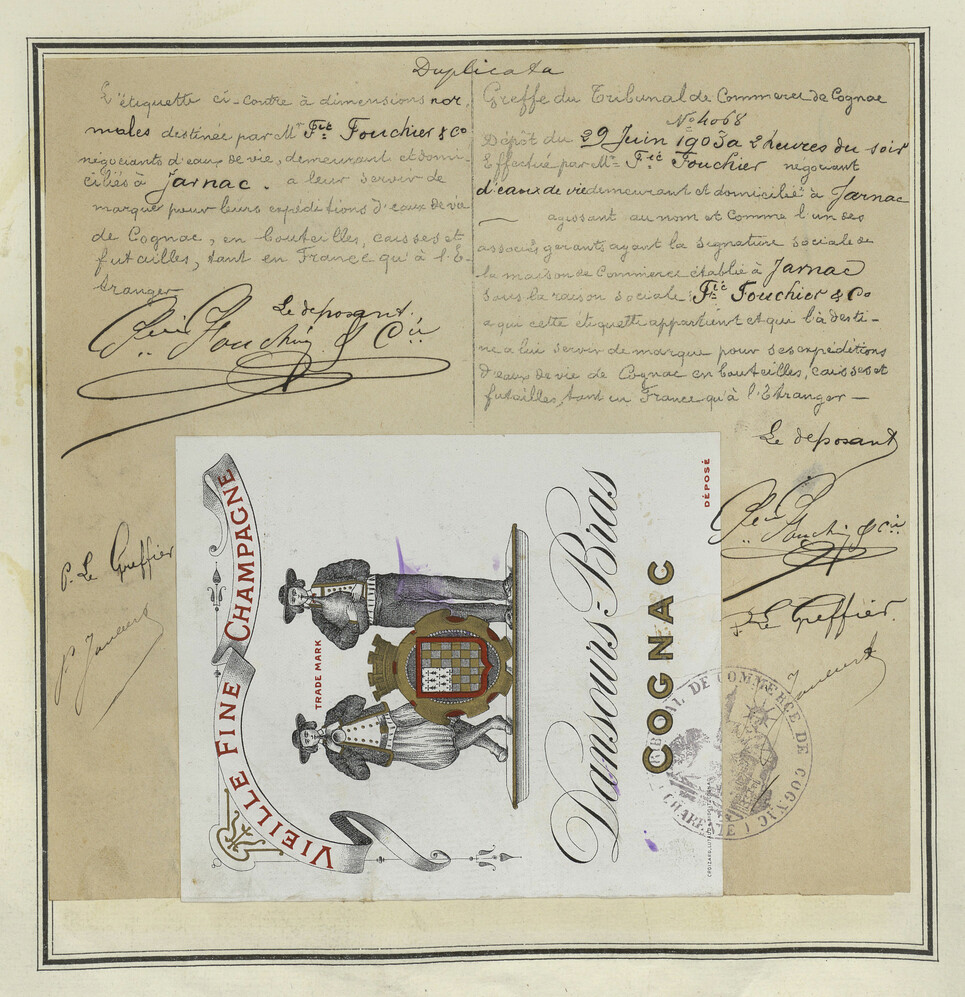 Duplicata
L'étiquette ci-contre à dimensions nor-
males destinée par Mr Fié Fouchier & Co
négociants d'eaux de vie, demeurant et domi-
ciliés à Jarnac. a leur servir de
marque pour leurs expéditions d'eaux de vie
de Cognac, en bouteilles, caisses et
futailles, tant en France qu'à l'E-
tranger
Le deposant.
Fouchier & Cie
Greffe du Tribunal de Commerce de Cognac
No 4068
Dépôt du 29 Juin 1903 a 2 heures du soir
Effectué par Mr Fié Fouchier négociant
d'eaux de vie demeurant et domicilié à Jarnac
— agissant au nom et comme l'un des
associés gerants, ayant la signature sociale de
la maison de Commerce établie à Jarnac
sous la raison sociale Fié Fouchier & Co
a qui cette étiquette appartient et qui l'a desti-
né a lui servir de marque pour ses expéditions
d'eaux de vie de Cognac en bouteilles, caisses et
futailles, tant en France qu'à l'Etranger —
Le deposant
Fouchier & Cie
P. Le Greffier
P. Le Greffier.
VIEILLE FINE CHAMPAGNE
TRADE MARK
Dansours-Bras
COGNAC
DÉPOSÉ
TRIBUNAL DE COMMERCE DE COGNAC
(CHARENTE)